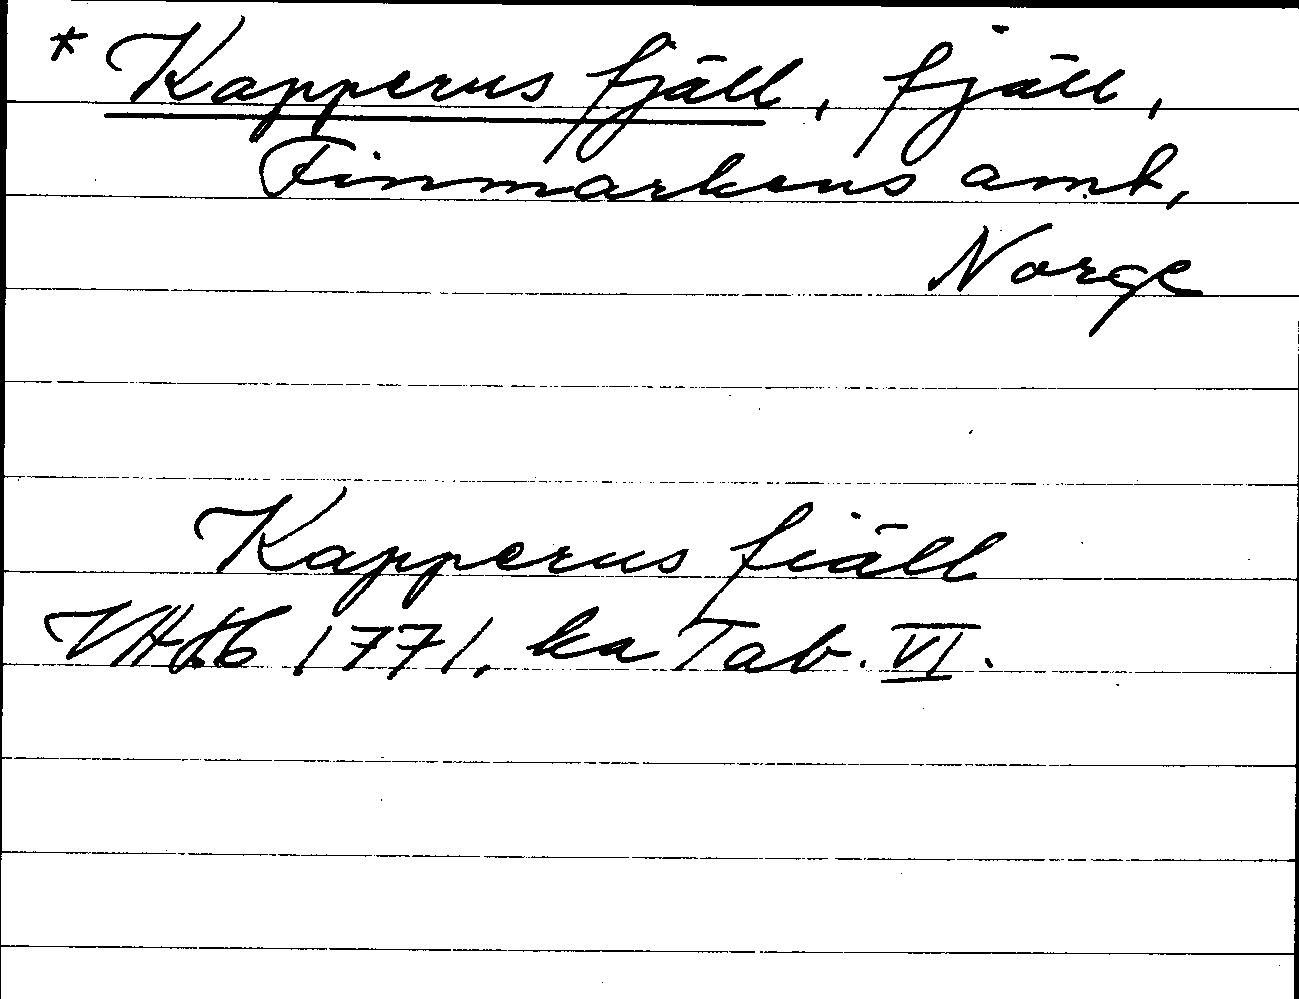 * Kapperus fjäll, fjäll,
Finmarkens amt,
Norge
Kapperus fiäll
1771, ka Tab. VI.